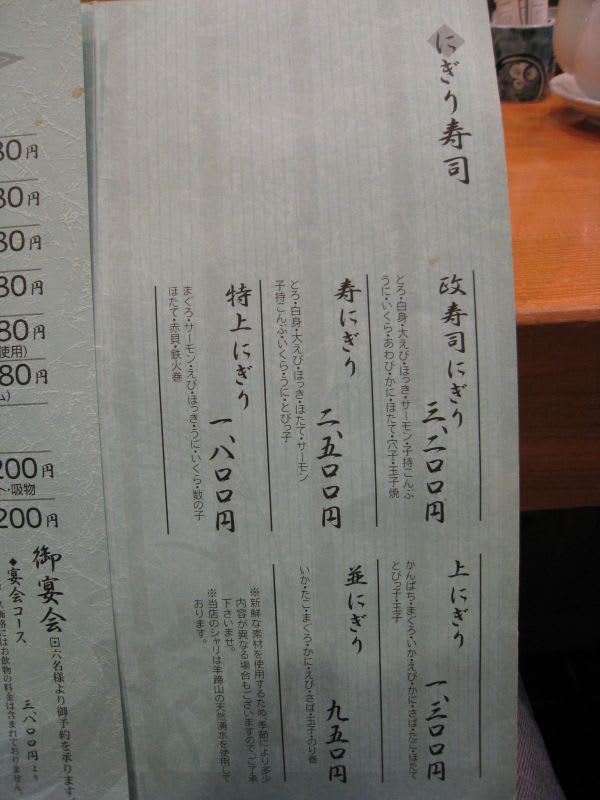 にぎり寿司
政寿司にぎり
三、二〇〇円
とろ・白身・大えび・ほっき・サーモン・子持こんぶ
うに・いくら・あわび・かに・ほたて・穴子・玉子焼
寿にぎり
二、五〇〇円
とろ・白身・大えび・ほっき・ほたて・サーモン
子持こんぶ・いくら・うに・とびっ子
特上にぎり
一、八〇〇円
まぐろ・サーモン・えび・ほっき・うに・いくら・数の子
ほたて・赤貝・鉄火巻
上にぎり
一、三〇〇円
かんぱち・まぐろ・いか・えび・かに・さば・たこ・ほたて
とびっ子・玉子
並にぎり
九五〇円
いか・たこ・まぐろ・かに・えび・さば・玉子・のり巻
※新鮮な素材を使用するため、季節により多少
内容が異なる場合もございますので、ご了承
下さいませ。
※当店のシャリは羊蹄山の天然湧水を使用して
おります。
80円
80円
80円
80円
80円
使用)
80円
200円
・吸物
200円
御宴会
六名様より御予約を承ります。
◆宴会コース
三、八〇〇円より
にはお飲物の料金は含まれておりません。